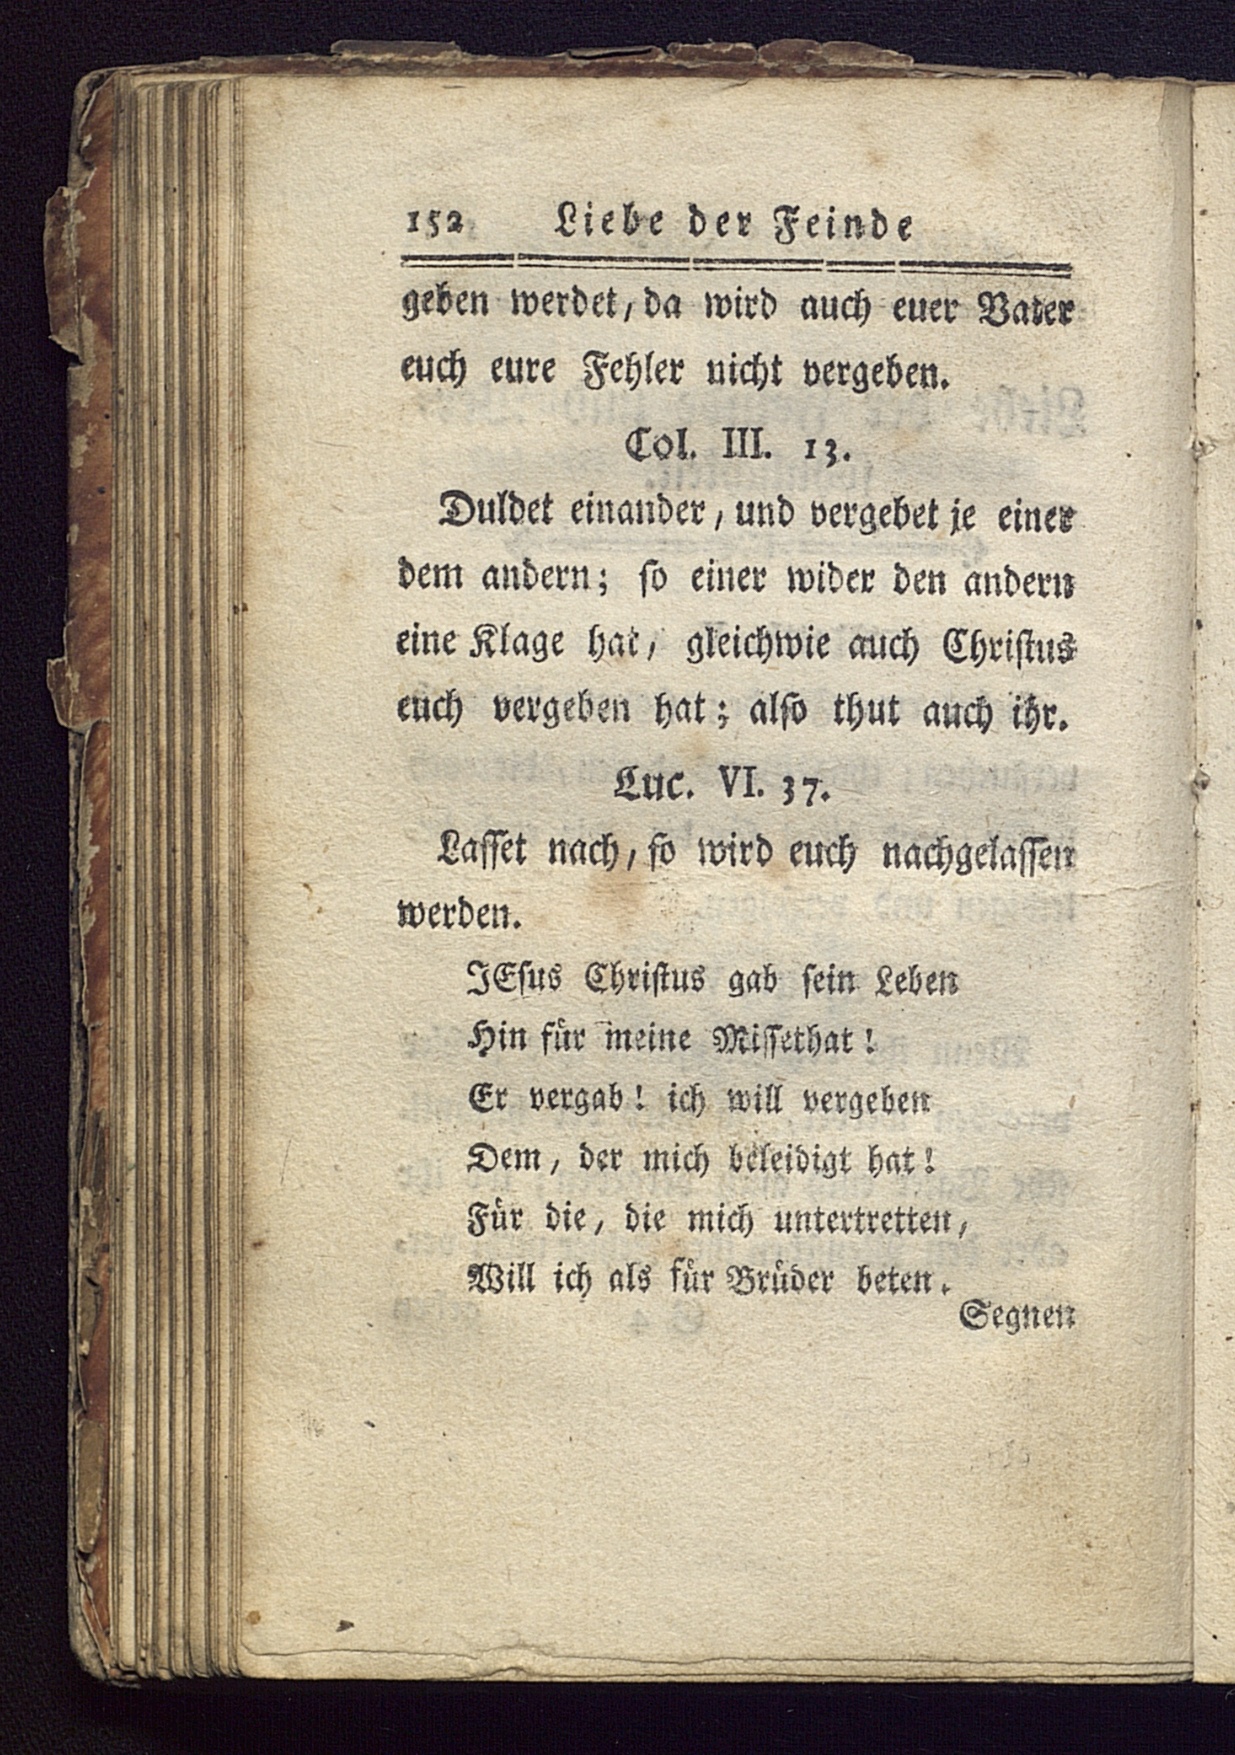 152 Liebe der Feinde
geben werdet, da wird auch euer Vater
euch eure Fehler nicht vergeben.
Col. III. 13.
Duldet einander, und vergebet je einer
dem andern; so einer wider den andern
eine Klage hat, gleichwie auch Christus
euch vergeben hat; also thut auch ihr.
Luc. VI. 37.
Lasset nach, so wird euch nachgelassen
werden.
JEsus Christus gab sein Leben
Hin für meine Missethat!
Er vergab! ich will vergeben
Dem, der mich beleidigt hat!
Für die, die mich untertretten,
Will ich als für Brüder beten.
Segnen